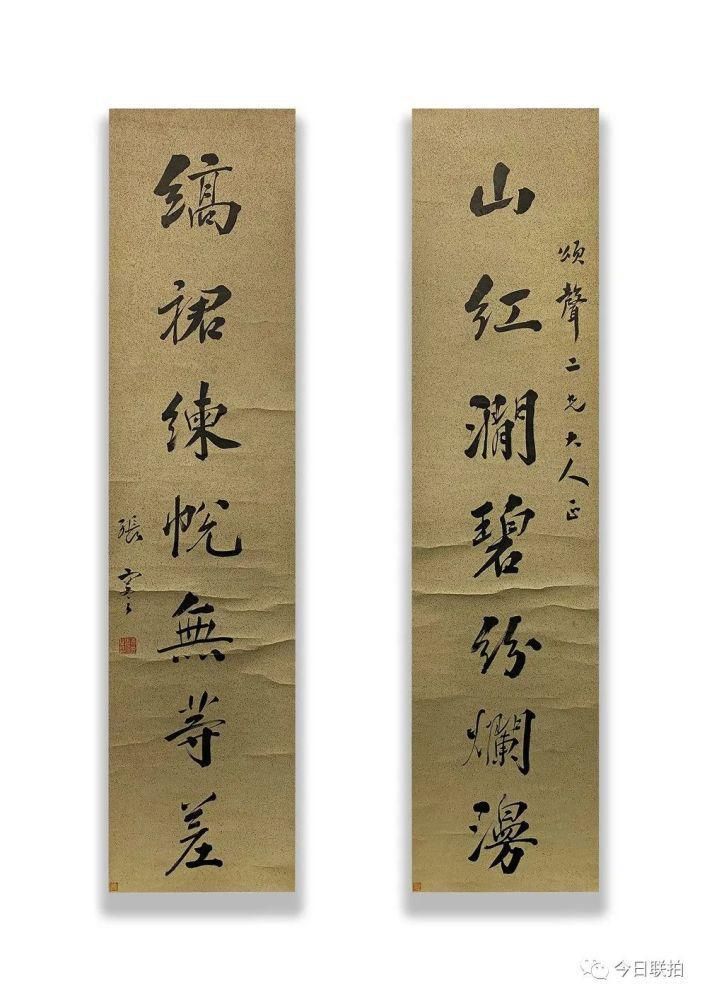 頌聲二兄大人正
山紅澗碧紛爛漫
縞裙練帨無等差
張謇
今日联拍